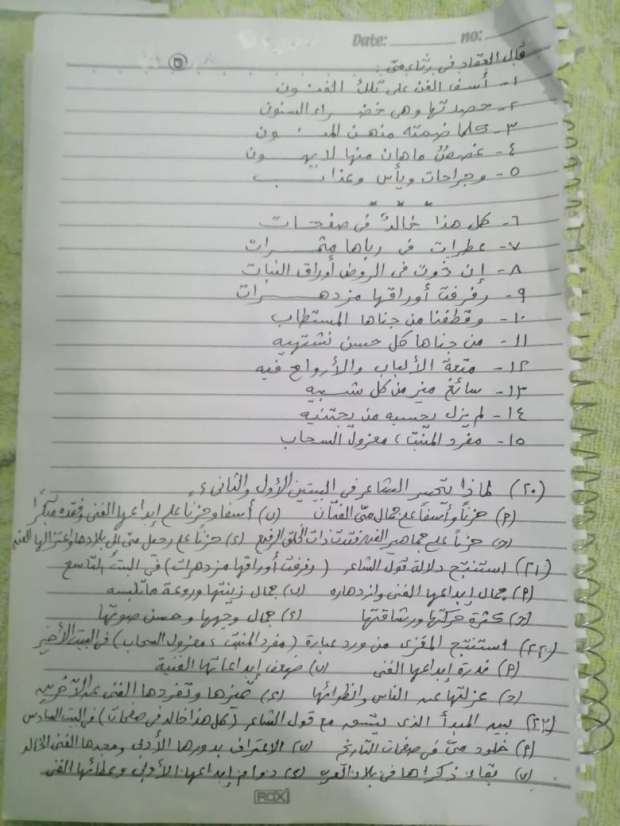 Date: no:
٥
قال العقاد في رثاء مى:
١- أسف الفن على تلك الفنون
٢- حصدتها وهي خضراء السنون
٣- كلما ضمته منهن المنون
٤- غصص ما هان منها لا يهون
٥- وجراحات ويأس وعذاب
٦- كل هذا خالد في صفحات
٧- عطرات في رباها مثمرات
٨- إن ذوت في الروض أوراق النبات
٩- رفرفت أوراقها مزدهرات
١٠- وقطفنا من جناها المستطاب
١١- من جناها كل حسن نشتهيه
١٢- متعة الألباب والأرواح فيه
١٣- سائغ ميز من كل شبيه
١٤- لم يزل يحسبه من يجتنيه
١٥- مفرد المنبت، معزول السحاب
(٢٠) لماذا يتحسر الشاعر في البيتين الأول والثاني؟
(أ) حزناً وأسفاً على جمال مى الفتان (ب) أسفا وحزنا على إبداعها الفنى وفقده مبكرا
(ج) حزناً على جماهير الفن فقدت ذات الخلق الرفيع (د) حزنا على رحيل مى إلى بلادها واعتزالها الفن
(٢١) استنتج دلالة قول الشاعر (رفرفت أوراقها مزدهرات) في البيت التاسع
(أ) جمال إبداعها الفنى وازدهاره (ب) جمال زينتها وروعة ما تلبسه
(ج) كثرة حركتها ورشاقتها (د) جمال وجهها وحسن صوتها
(٢٢) استنتج المغزى من ورد عبارة (مفرد المنبت، معزول السحاب) في البيت الأخير
(أ) ندرة إبداعها الفنى (ب) ضعف إبداعاتها الفنية
(ج) عزلتها عند الناس وانطوائها (د) تميزها وتفردها الفنى عند الآخرين
(٢٣) بين المبدأ الذى يتسق مع قول الشاعر (كل هذا خالد في صفحات) في البيت السادس
(أ) خلود مى في صفحات التاريخ (ب) الاعتراف بدورها الأدبى ومجدها الفنى الخالد
(ج) بقاء ذكراها في بلاد العرب (د) دوام إبداعها الأدبى وعطائها الفنى
ROX